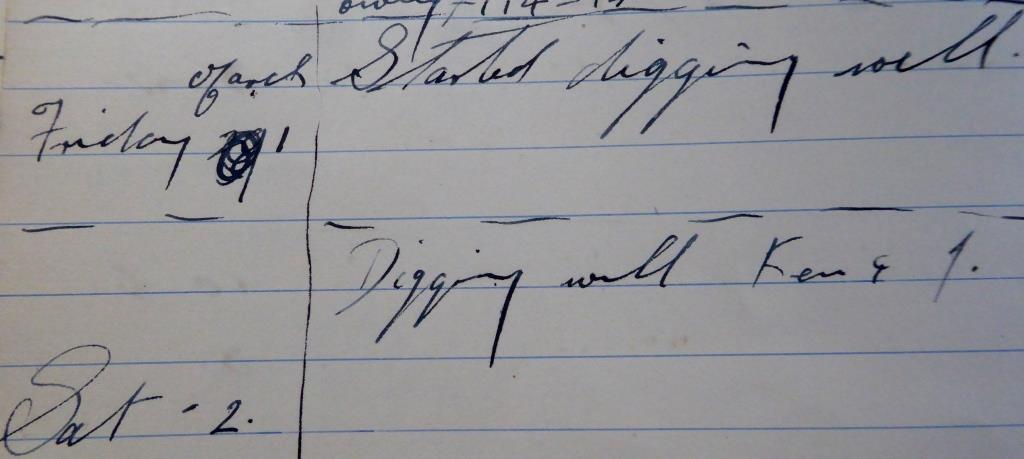 March Started digging well.
Friday 1
Digging well Ken & I.
Sat - 2.